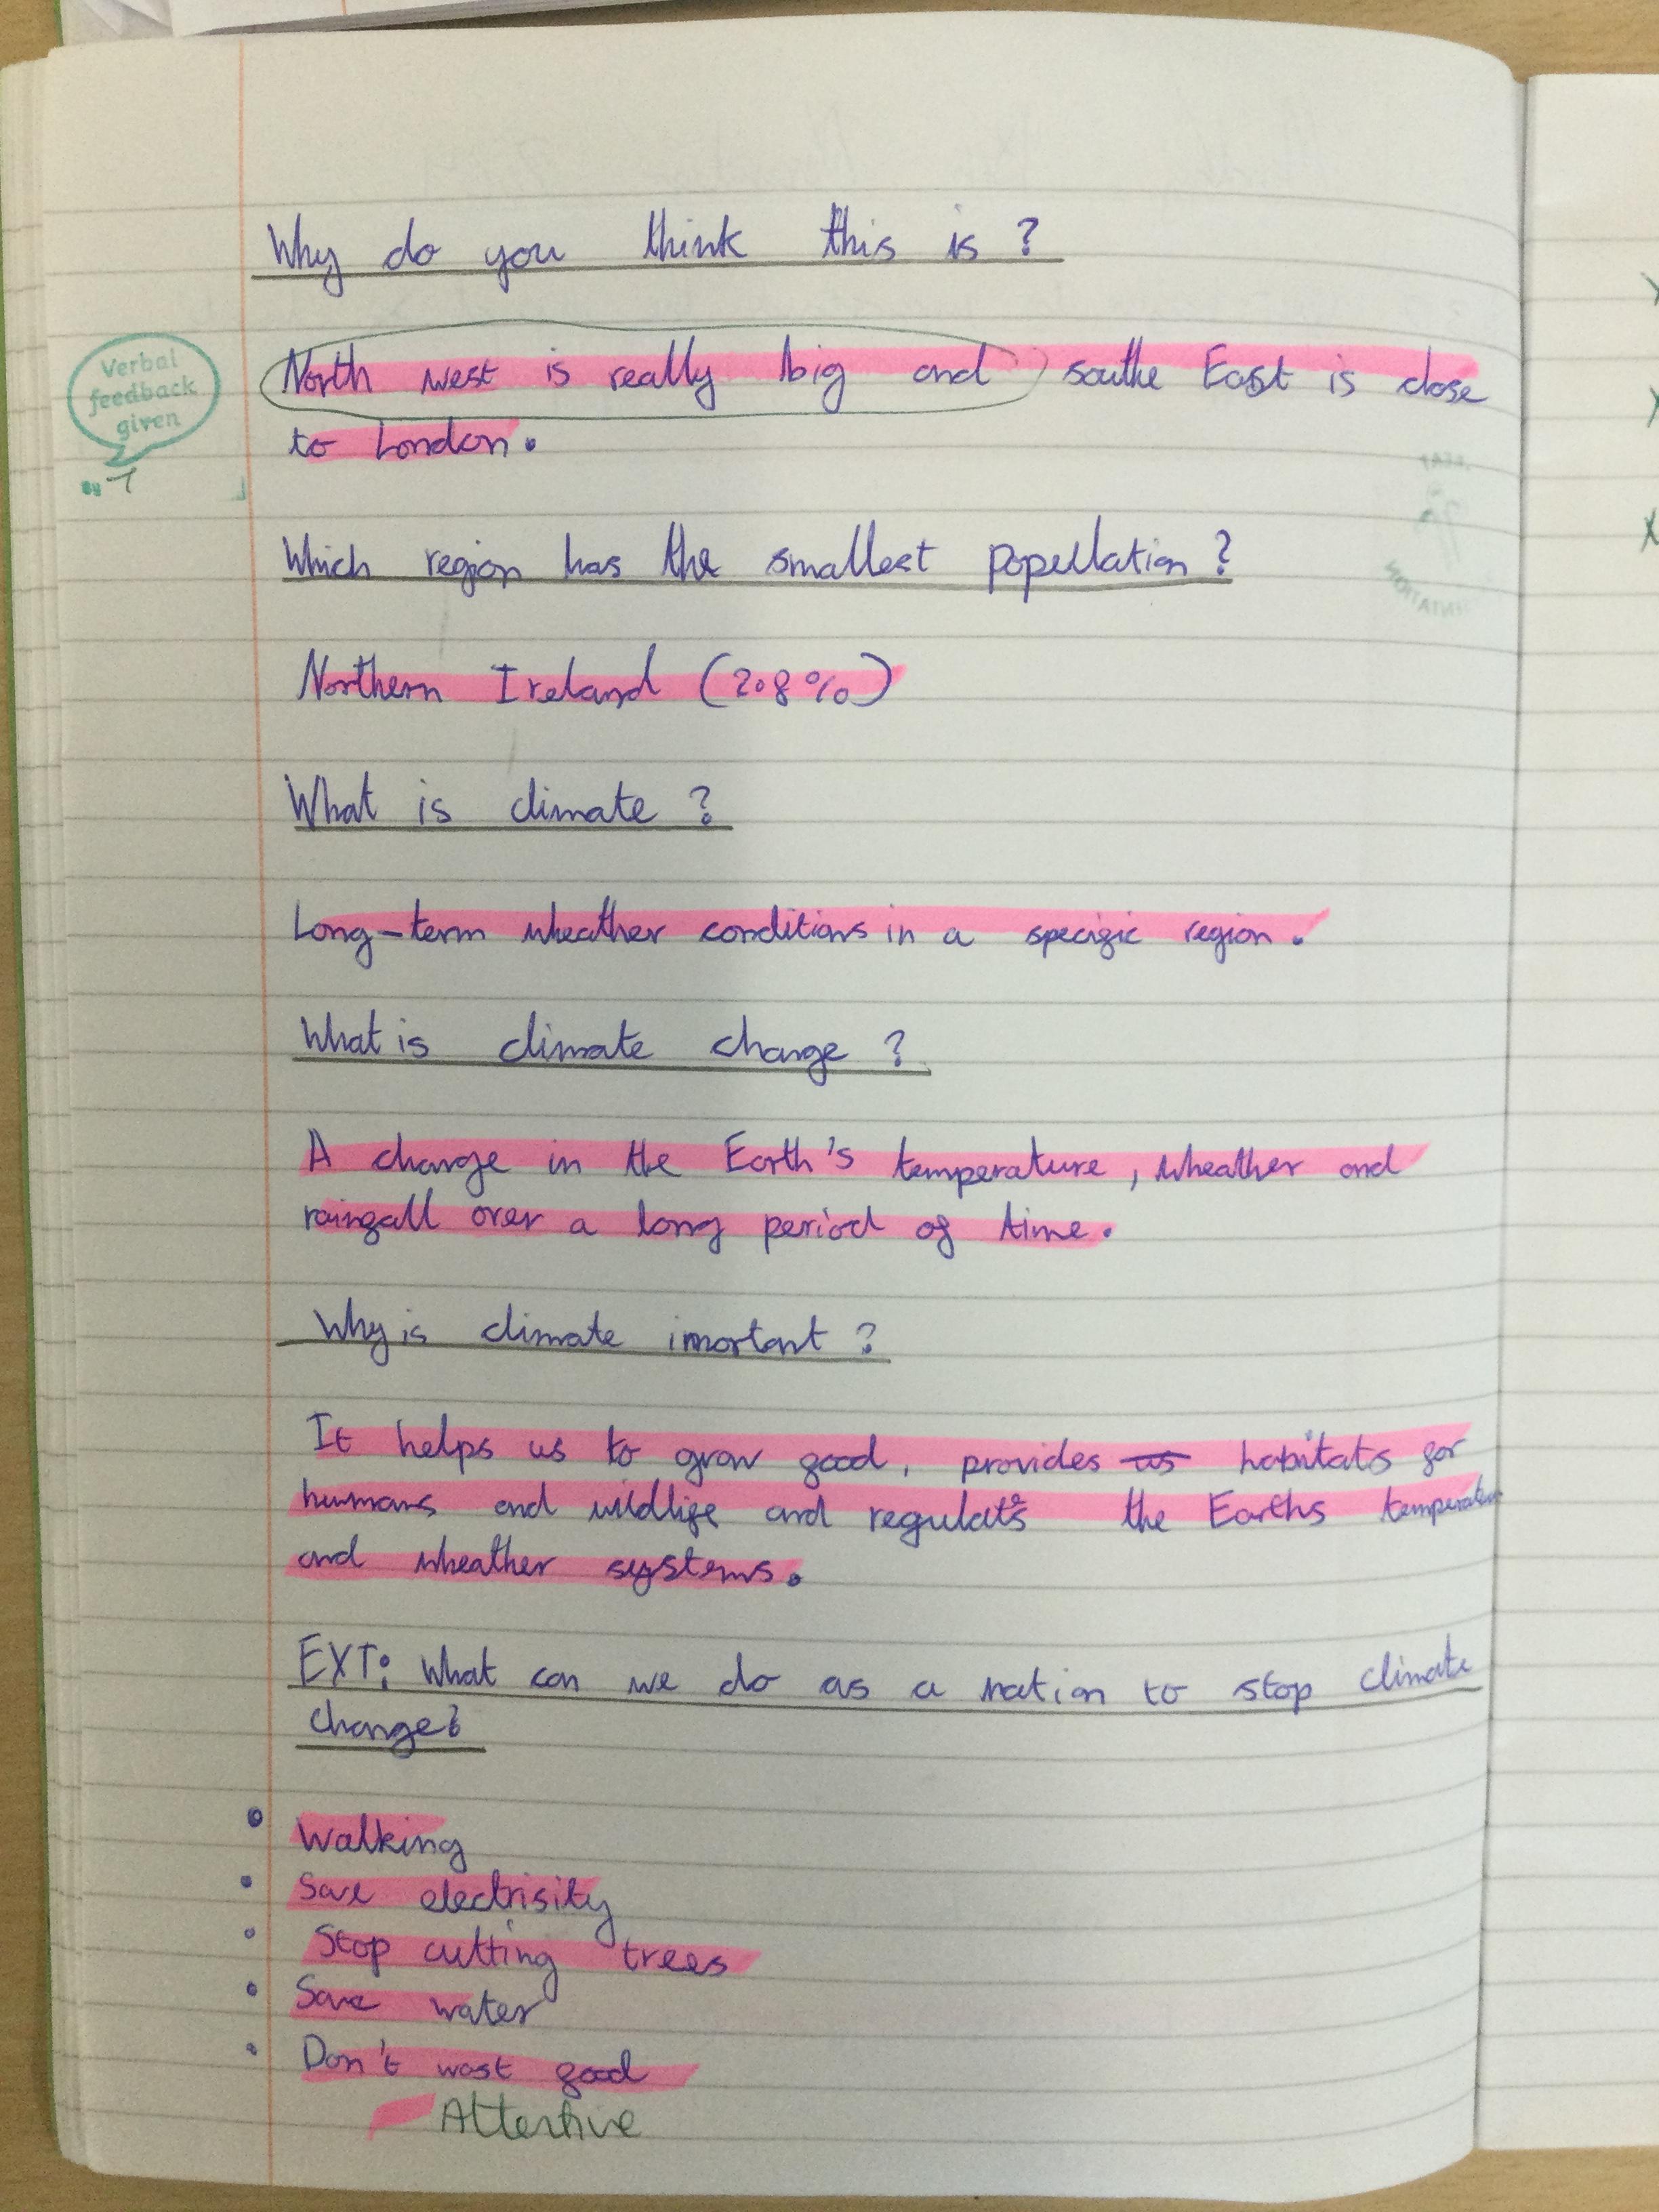 Why do you think this is ?
Verbal
feedback
given
By T
North west is really big and southe East is close
to London.
Which region has the smallest popullation ?
Northern Ireland (2.8%)
What is climate ?
Long-term wheather conditions in a specific region.
What is climate change ?
A change in the Earth's temperature, wheather and
rainfall over a long period of time.
Why is climate imortant ?
It helps us to grow food, provides us habitats for
humans and wildlife and regulats the Earths temperature
and wheather systems.
EXT: What can we do as a nation to stop climate
change?
• Walking
• Save electrisity
• Stop cutting trees
• Save water
• Don't wast food
Attentive